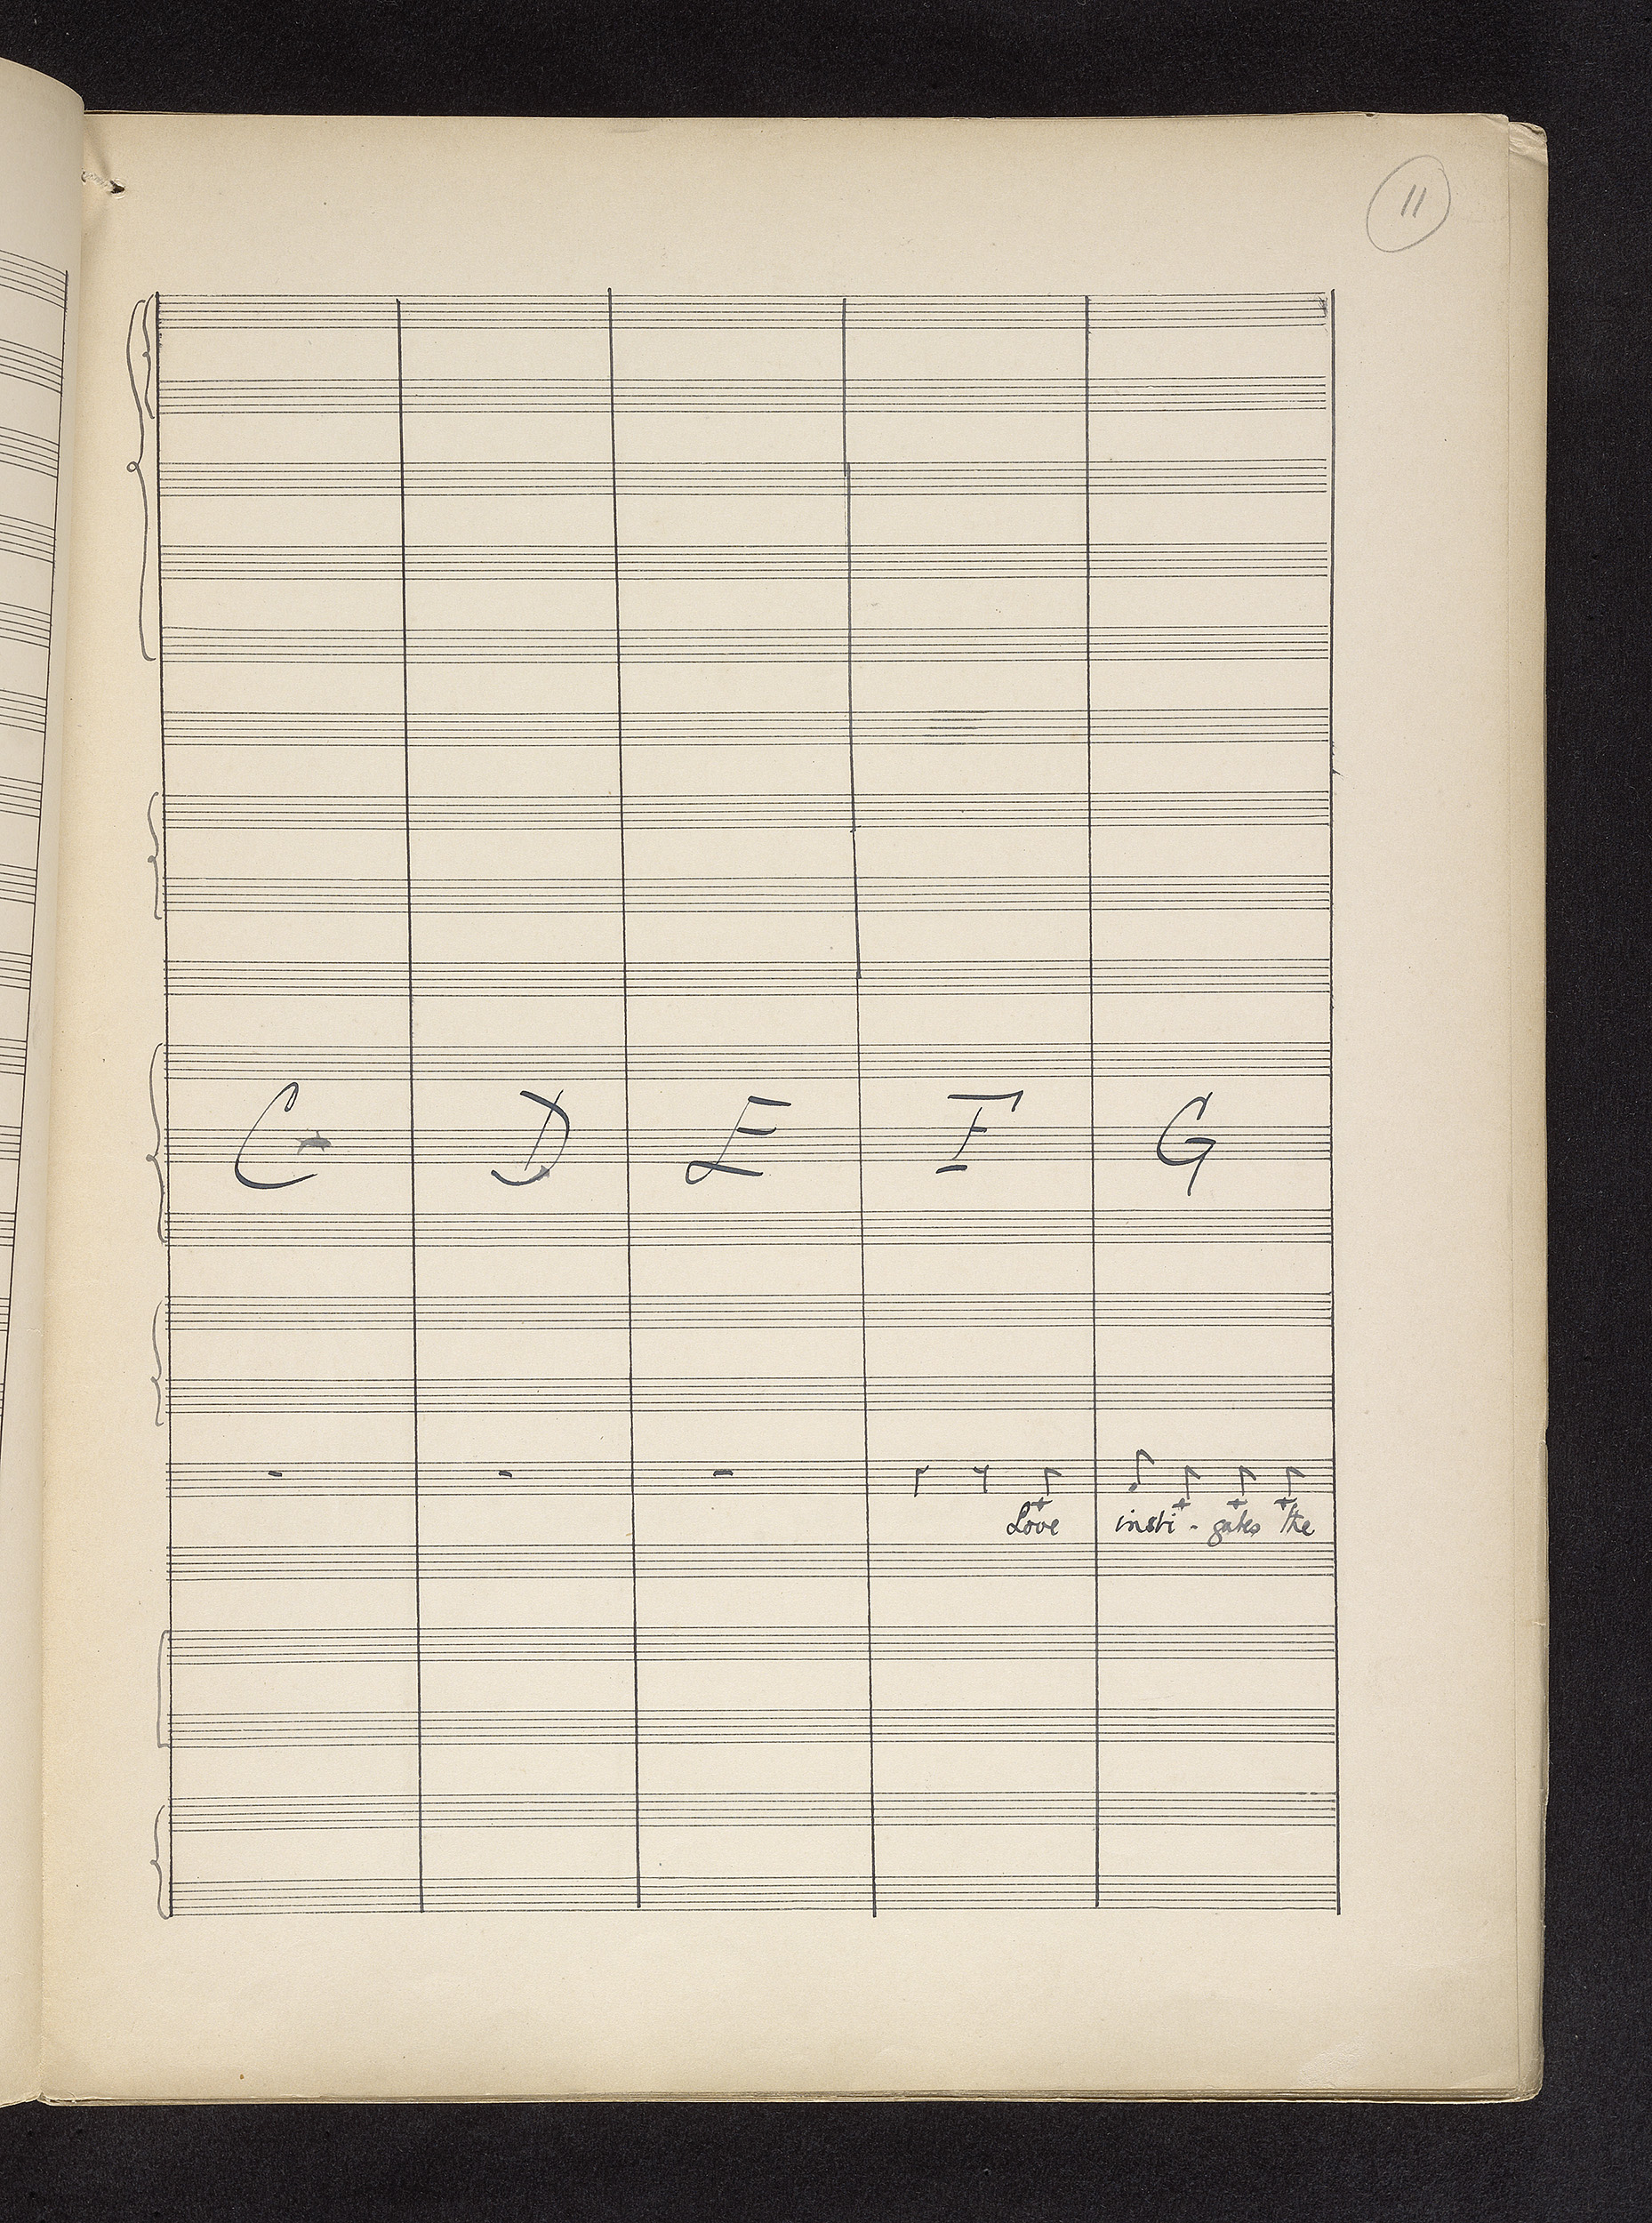 11
C D E F G
Love insti - gates the